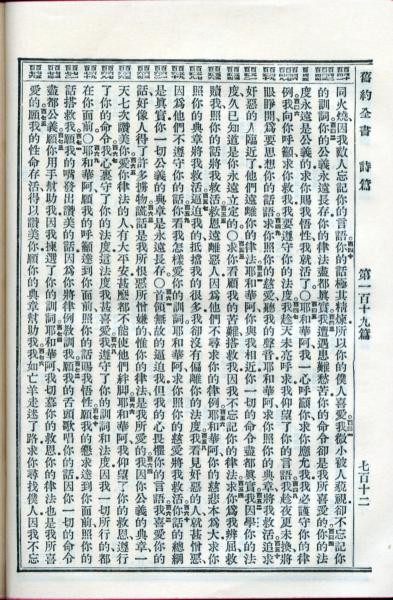 舊約全書 詩篇 第一百十九篇 七百十二
同火燒因我敵人忘記你的言語你的話極其精煉所以你的僕人喜愛我微小被人藐視卻不忘記你
的訓詞你的公義永遠長存你的律法盡都真實我遭遇患難愁苦你的命令卻是我所喜愛你的法
度永遠是公義的求你賜我悟性我就活了○耶和華阿我一心呼籲你求你應允我我必謹守你的律
例我向你呼籲求你救我我要遵守你的法度我趁天未亮呼求我仰望了你的言語我趁夜更未換將
眼睜開為要思想你的話語求你照你的慈愛聽我的聲音耶和華阿求你照你的典章將我救活追求
奸惡的人臨近了他們遠離你的律法耶和華阿你與我相近你一切的命令盡都真實我因學你的法
度久已知道是你永遠立定的○求你看顧我的苦難搭救我因我不忘記你的律法求你為我辨屈救
贖我照你的話將我救活救恩遠離惡人因為他們不尋求你的律例耶和華阿你的慈悲本為大求你
照你的典章將我救活逼迫我的抵擋我的很多我卻沒有偏離你的法度我看見奸惡的人就甚憎惡
因為他們不遵守你的話你看我怎樣愛你的訓詞耶和華阿求你照你的慈愛將我救活你話的總綱
是真實你一切公義的典章是永遠長存○首領無故的逼迫我但我的心畏懼你的言語我喜愛你的
話好像人得了許多擄物謊話是我所恨惡所憎嫌的惟你的律法是我所愛的我因你公義的典章一
天七次讚美你愛你律法的人有大平安甚麼都不能使他們絆腳耶和華阿我仰望了你的救恩遵行
了你的命令我心裏守了你的法度這法度我甚喜愛我遵守了你的訓詞和法度因我一切所行的都
在你面前○耶和華阿願我的呼籲達到你面前照你的話賜我悟性願我的懇求達到你面前照你的
話搭救我願我的嘴發出讚美的話因為你將律例教訓我願我的舌頭歌唱你的話因你一切的命令
盡都公義願你用手幫助我因我揀選了你的訓詞耶和華阿我切慕你的救恩你的律法也是我所喜
愛的願我的性命存活得以讚美你願你的典章幫助我我如亡羊走迷了路求你尋找僕人因我不忘